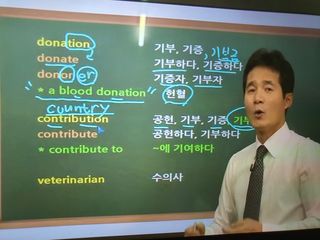 donation 기부, 기증, 기부금
donate 기부하다, 기증하다
donor er 기증자, 기부자
" * a blood donation " 헌혈
country
contribution 공헌, 기부, 기증
contribute 공헌하다, 기부하다
* contribute to ~에 기여하다
veterinarian 수의사